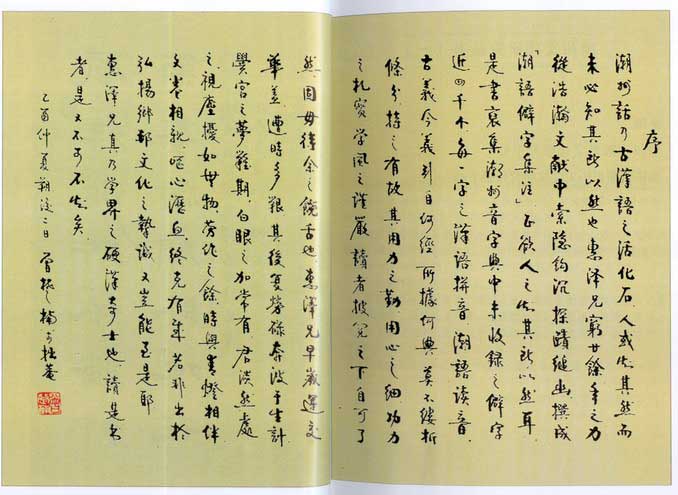 序
潮州話乃古漢語之活化石人或知其然而
未必知其所以然也惠澤兄窮廿餘年之力
從浩瀚文献中索隱鈎沉探賾繼幽撰成
「潮語僻字集注」正欲人之知其所以然耳
是書裒集潮州音字典中未收録之僻字
近四千个每一字之漢語拼音潮語读音
古義今義引自何經所據何典莫不缕析
條分持之有故其用力之勤用心之细功力
之扎實学風之谨嚴讀者披覽之下自可了
然固毋待余之饒舌也惠澤兄早歲運交
華盖遭時多艱其後复勞碌奔波于生計
黌宮之夢難期白眼之加常有君淡然處
之視塵擾如毋物劳作之餘時與青燈相伴
文卷相親呕心瀝血終克有成若非出於
弘揚鄉邦文化之摯誠又豈能至是耶
惠澤兄真乃学界之硕漢奇士也讀是书
者是又不可不知矣
乙酉仲夏朔後二日曾楚楠于拙庵